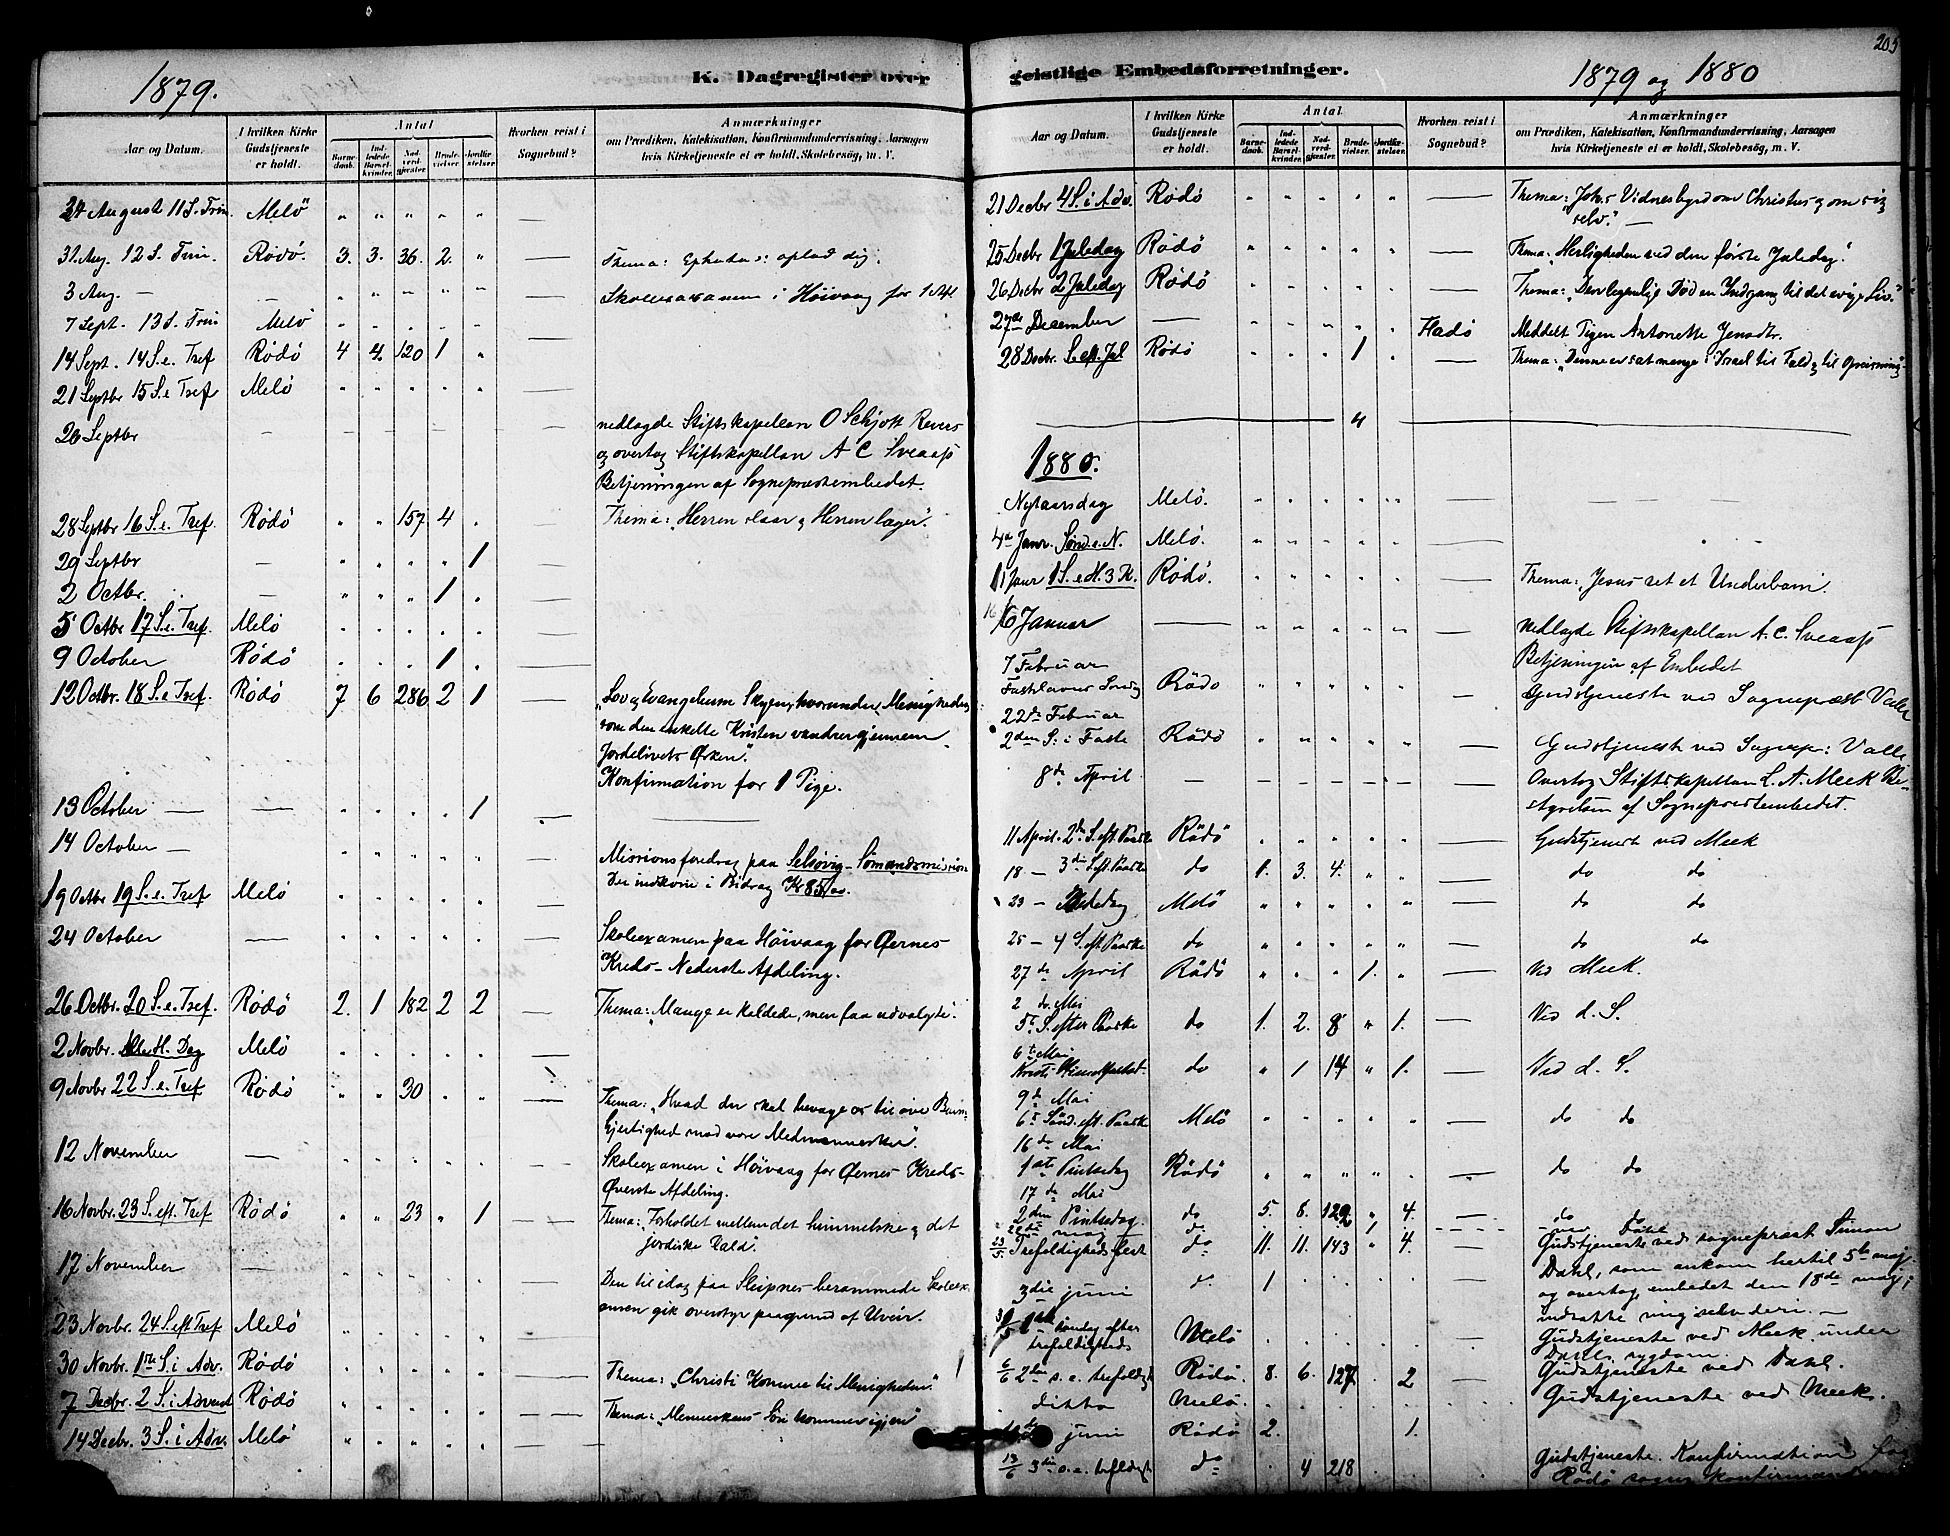 205
1879.
K. Dagregister over
Aar og Datum.
I hvilken Kirke Gudstjeneste er holdt.
Antal
Barnedaab.
Indledede Barselkvinder.
Nadverdgjester.
Brudevielser.
Jordfæstelser.
Hvorhen reist i Sognebud?
Anmærkninger
om Prædiken, Katekisation, Konfirmandundervisning, Aarsagen
hvis Kirketjeneste ei er holdt, Skolebesög, m. V.
24 August 11 S. Trin. Melö " " " " " —
31. Aug. 12 S. Trin. Rödö. 3. 3. 36. 2. " — Thema: Ephata: oplad dig.
3 Aug. — — " " " " " — Skoleexamen i Höivaag for 1 Afd
7 Sept. 13 S. Trin Melö " " " " " —
14 Sept. 14 S. e. Tref Rödö 4 4. 120 1 " —
21 Septbr 15 S. e Tref Melö " " " " " —
26 Septbr — nedlagde Stiftskapellan O Schjött Revers
og overtog Stiftskapellan A C Sveaass
Betjeningen af Sognepræstembedet.
28 Septbr 16 S. e. Tref. Rödö " " 157 4 " — Thema: "Herren slaar og Herren læger".
29 Septbr — " " " " 1 —
2 Octbr. — " " " 1 " —
5 Octbr 17 S. e. Tref. Melö " " " " " —
9 October Rödö " " " 1 " —
12 Octbr. 18 S. e. Tref. Rödö 7 6 286 2 1 — "Lov og Evangelium Skyen, hvorunder Menigheden
som den enkelte Kristen vandrer gjennem
Jordelivets Örken".
Konfirmation for 1 Pige.
13 October — — " " " " 1 — —
14 October — " " " " " — Missionsforedrag paa Selsövig - Sömandsmission
Der indkom i Bidrag Kr 85,00.
19 Octbr 19 S. e. Tref Melö " " " " " —
24 October — " " " " " — Skoleexamen paa Höivaag for Öernes
Kreds - Nederste Afdeling.
26 Octbr. 20 S. e. Tref. Rödö 2. 1 182 2 2 — Thema: "Mange er kaldede, men faa udvalgte".
2 Novbr. Alle H. Dag Melö " " " " " —
9 Novbr 22 S. e. Tref Rödö " " 30 " " — Thema: "Hvad der skal bevæge os til at øve Barm-
hjertighed mod vore Medmennesker".
12 November — " " " " " — Skoleexamen i Höivaag for Öernes Kreds-
Överste Afdeling.
16 Novbr. 23 S. eft. Tref Rödö " " 23 " 1 — Thema: "Forholdet mellem det himmelske og det
jordiske Kald".
17 November — " " " " " — Den til idag paa Sleipnes berammede Skoleex-
amen gik overstyr paagrund af Uveir.
23 Novbr. 24 S. eft Tref Melö " " " " " —
30 Novbr. 1ste S. i Adv. Rödö " " " " " — Thema: "Christi Komme til Menigheden".
7 Decbr. 2 S. i Advent Rödö " " " " " — Thema: "Menneskens Sön kommer igjen"
14 Decbr. 3 S. i Adv. Melö " " " " " —
geistlige Embedsforretninger.
1879 og 1880
Aar og Datum.
I hvilken Kirke Gudstjeneste er holdt.
Antal
Barnedaab.
Indledede Barselkvinder.
Nadverdgjester.
Brudevielser.
Jordfæstelser.
Hvorhen reist i Sognebud?
Anmærkninger
om Prædiken, Katekisation, Konfirmandundervisning, Aarsagen
hvis Kirketjeneste ei er holdt, Skolebesög, m. V.
21 Decbr 4 S. i Adv. Rödö " " " " " — Thema: "Johs Vidnesbyrd om Christus og om sig
selv." —
25 Decbr 1 Juledag Rödö " " " " " — Thema: "Herligheden ved den förste Juledag".
26 Decbr 2 Juledag Rödö " " " " " — Thema: "Den legemlige Död en Indgang til det evige Liv."
27de December — " " " " " Fladö Meddelt Pigen Antonette Jensdtr.
28 Decbr. S. eft. Jul Rödö " " " 1 " — Thema: "Denne er sat mange i Israel til Fald og til Opreisning".
4
1880.
Nytaarsdag Melö. " " " " " — — —
4de Janr. Sönd. e. N. Melö. " " " " " —
11 Janr 1 S. e H. 3 K. Rödö. " " " " " — Thema: "Jesus ret et Underbarn".
16 16 Januar — " " " " " — Nedlagde Stiftskapellan A. C. Sveaass
Betjeningen af Embedet
7 Februar
Fastelavns Söndag Rödö " " " " " — Gudstjeneste ved Sognepræst Valle
22de Februar
2den S: i Faste Rödö " " " " " — Gudstjenest ved Sognep: Valle
8de April — — — — — — Overtog Stiftskapellan L. A. Meek Be-
styrelsen af Sognepræstembedet.
11 April. 2den S. eft Paaske Rödö " " " " " — Gudstjenest ved Meek
18 — 3die S eft. Paaske do 1. 3. 4. " " — do do
23 — Bededag Melö " " " " " — do do
25 — 4 S. eft. Paaske do " " " " " — do do
27de April Rödö " " " 1. " — Ved Meek.
2 den Mai
5te S. efter Paaske do 1. 2. 8 " 1. — Ved d. S.
6te Mai
Kristi Himmelfartsd. do " 1 14 " 1. — Ved d. S.
9de Mai
6te Sönd. eft. Paaske Melö " " " " " — do do
16de Mai
1ste Pintsedag Rödö " " " " " — do do
17de Mai
2den Pintsedag do 5. 8. 129 " 4. — do do
22de maj do " " " 1 " — ved Dahl
23/5 Trefoldigheds fest do 11. 11. 143 " 4. — Gudstjeneste ved sognepræst Simon
Dahl, som ankom hertil 5te maj
og overtog embedet den 18de maj;
indsatte mig selv deri. —
3die juni do 1 . . . . —
30/5 1ste söndag efter
trefoldigheds Melö . . . . . — Gudstjeneste ved Meek under
Dahls sygdom.
6/6 2den s. e. trefoldigt Rödö. 8. 6. 127 . 2 — Gudstjeneste ved Dahl.
ditto Melö. . . . . . Gudstjeneste ved Meek.
juni Rödö 2. 1.
13/6 3die s. e. trefoldigt do . 4 218 . . . Gudstjeneste. Konfirmation for
Rödö sogns konfirmander